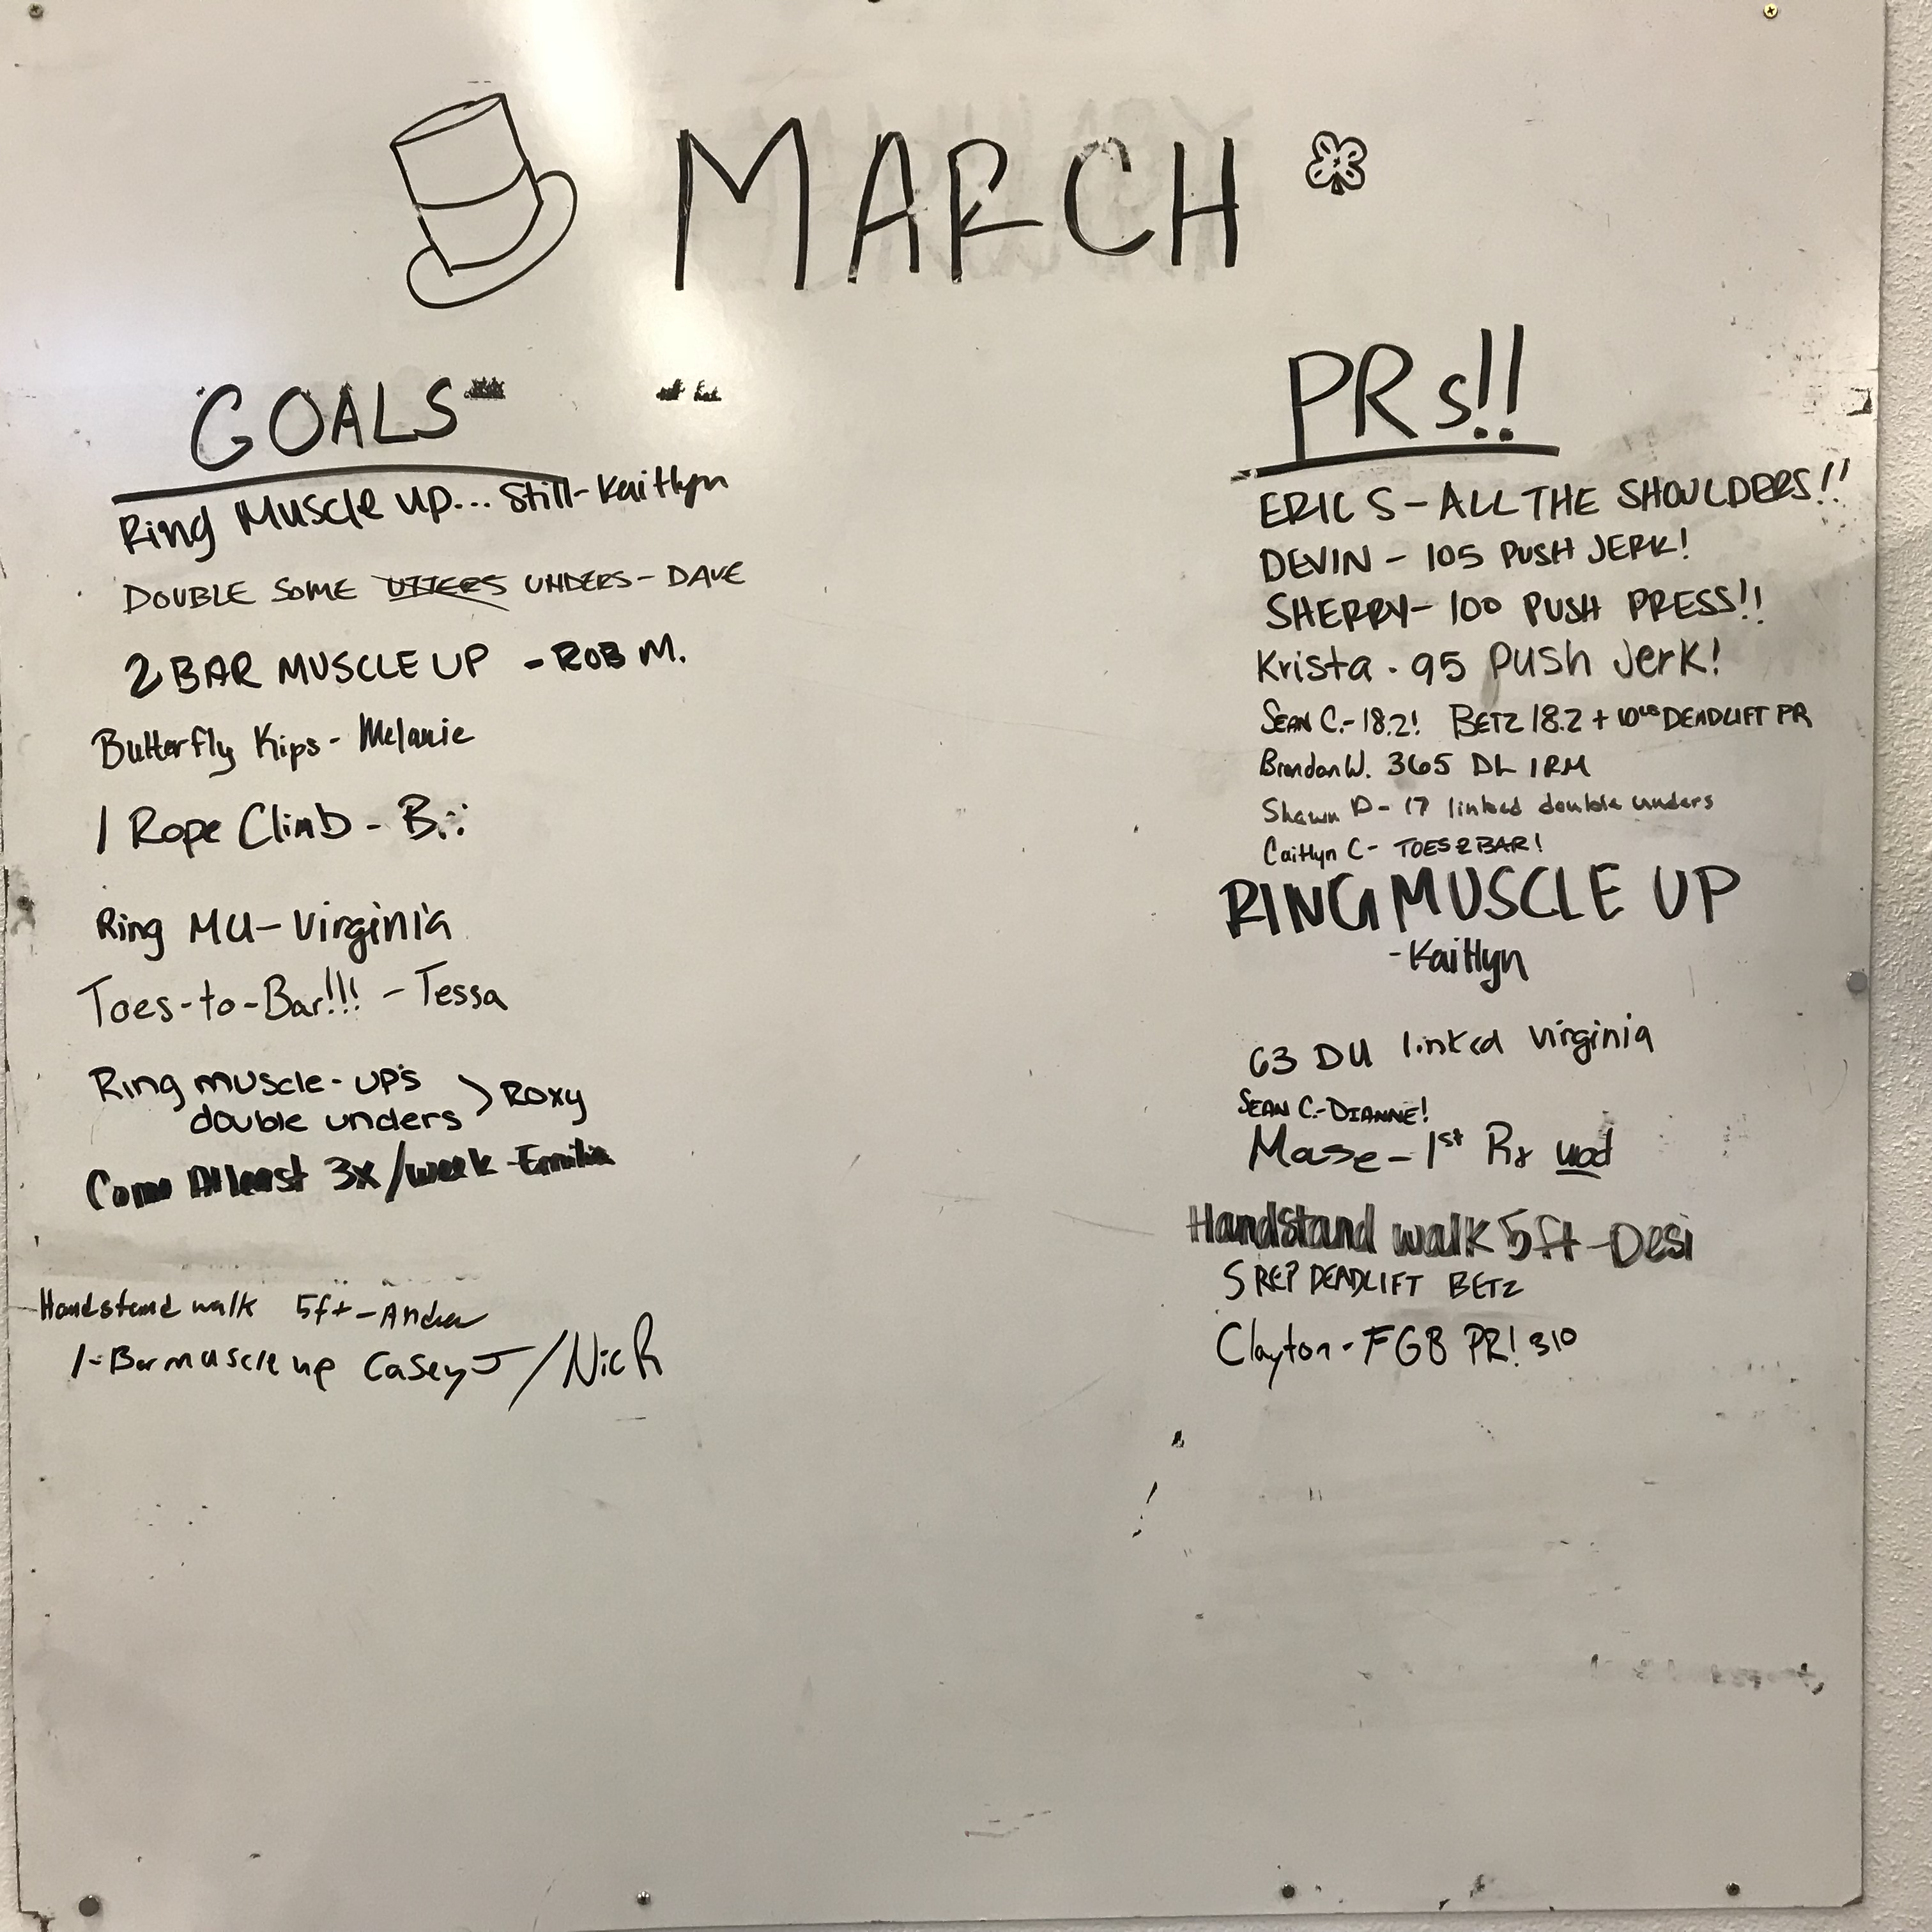 MARCH
GOALS
Ring Muscle up... Still-Kaitlyn
DOUBLE SOME UTTERS UNDERS - DAVE
2 BAR MUSCLE UP - ROB M.
Butterfly Kips - Melanie
1 Rope Climb - B.
Ring MU - Virginia
Toes-to-Bar!!! - Tessa
Ring muscle-up's
double unders > Roxy
Come At least 3x/week - Emilia
Handstand walk 5ft - Andrea
1 - Bar muscle up Casey J / Nic R
PRs!!
ERIC S - ALL THE SHOULDERS!!
DEVIN - 105 PUSH JERK!
SHERRY - 100 PUSH PRESS!!
Krista - 95 Push Jerk!
SEAN C. - 18.2! BETZ 18.2 + 10LB DEADLIFT PR
Brandon W. 365 DL 1RM
Shawn D - 17 linked double unders
Caitlyn C - TOES 2 BAR!
RING MUSCLE UP
- Kaitlyn
63 DU linked Virginia
SEAN C. - DIANNE!
Mase - 1st Rx wod
Handstand walk 5ft - Desi
5 REP DEADLIFT BETZ
Clayton - FGB PR! 310